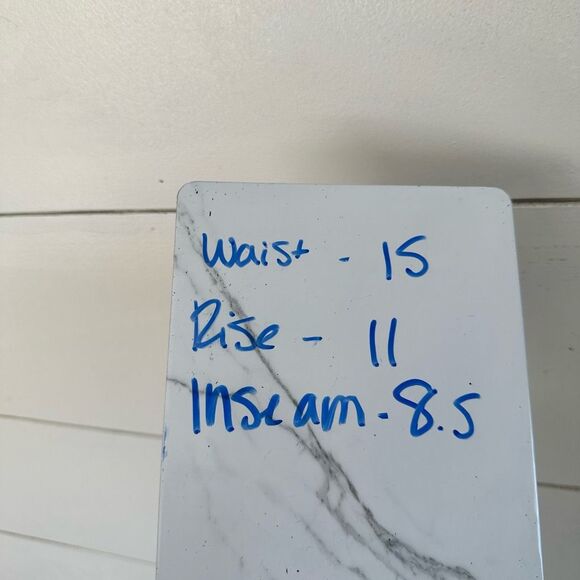 Waist - 15
Rise - 11
Inseam - 8.5